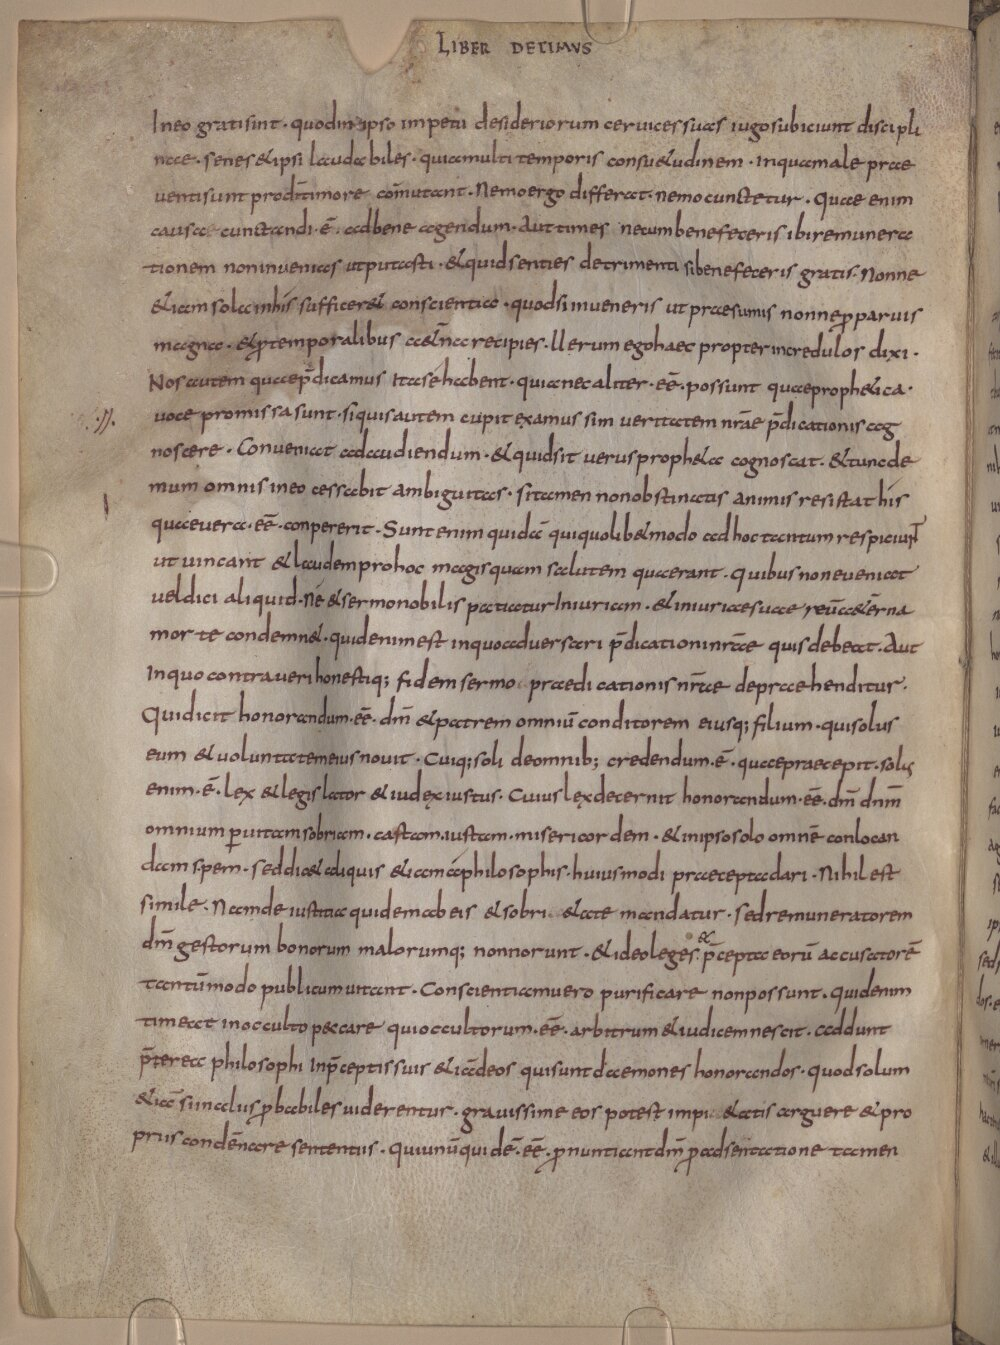 LIBER DECIMUS
In eo grati sint · quod in ipso impetu desideriorum cervices suas iugo subiciunt discipli
nae · senes & ipsi laudabiles · qui a multi temporis consu&udinem · in qua male prae
venti sunt pro di timore commutant · Nemo ergo differat · nemo cunctetur · Quae enim
causa cunctandi · ē · ad bene agendum · Aut times ne cum benefeceris ibi remunera
tionem non invenias ut putasti · & quid senties detrimenti si benefeceris gratis · Nonne
& iam sola in his suffcer& conscientia · quod si inveneris ut praesumis nonne p parvis
magna · & p temporalibus a&ñna recipies · Uerum ego haec propter incredulos dixi ·
Nos autem quae p̄dicamus Ita se habent · quia nec aliter · eē · possunt quae proph&ica ·
voce promissa sunt · si quis autem cupit examussim veritatem nrāe p̄dicationis cog
noscere · Conveniat ad audiendum · & quid sit verus proph&a cognoscat · & tunc de
mum omnis in eo cessabit ambiguitas · si tamen non obstinatis animis resistat his
quae vera · eē · conpererit · Sunt enim quidā qui quolib& modo ad hoc tantum respiciunt
ut vincant & laudem pro hoc magis quam salutem quaerant · Quibus non eveniat
vel dici aliquid · Ne & sermo nobilis patiatur Iniuriam · & iniuriae suae reūa&ērna
morte condemn& · quid enim est in quo adversari p̄dicationi nrāe quis debeat · Aut
In quo contra veri honestiq; fidem sermo praedicationis nrāe depraehenditur ·
Qui dicit honorandum · eē · dm̄ & patrem omniū conditorem eiusq; filium · qui solus
eum & voluntatem eius novit · Cuiq; soli de omnib; credendum · ē · quae praecepit · solus
enim · ē · lex & legislator & iudex iustus · Cuius lex decernit honorandum · eē · dm̄ dnm̄
omnium p vitam sobriam · castam · iustam · misericordem · & in ipso solo omnē conlocan
dam spem · sed dic& aliquis & iam a philosophis · huiusmodi praecepta dari · Nihil est
simile · Nam de iustitia quidem ab eis & sobri &ate mandatur · sed remuneratorem
dm̄ gestorum bonorum malorumq; non norunt · & ideo leges · & p̄cepta eorū accusatorē
tantūmodo publicum vitant · Conscientiam vero purificare non possunt · Quid enim
timeat in occulto peccare qui occultorum · eē · arbitrum & iudicem nescit · addunt
p̄terea philosophi In p̄ceptis suis & iā deos qui sunt daemones honorandos · quod solum
& iā si in aelus p babiles viderentur · gravissime eos potest impi &atis arguere & pro
priis condēnare sententiis · Qui unū quidē · eē · pronuntiant dm̄ p adsentatione tamen